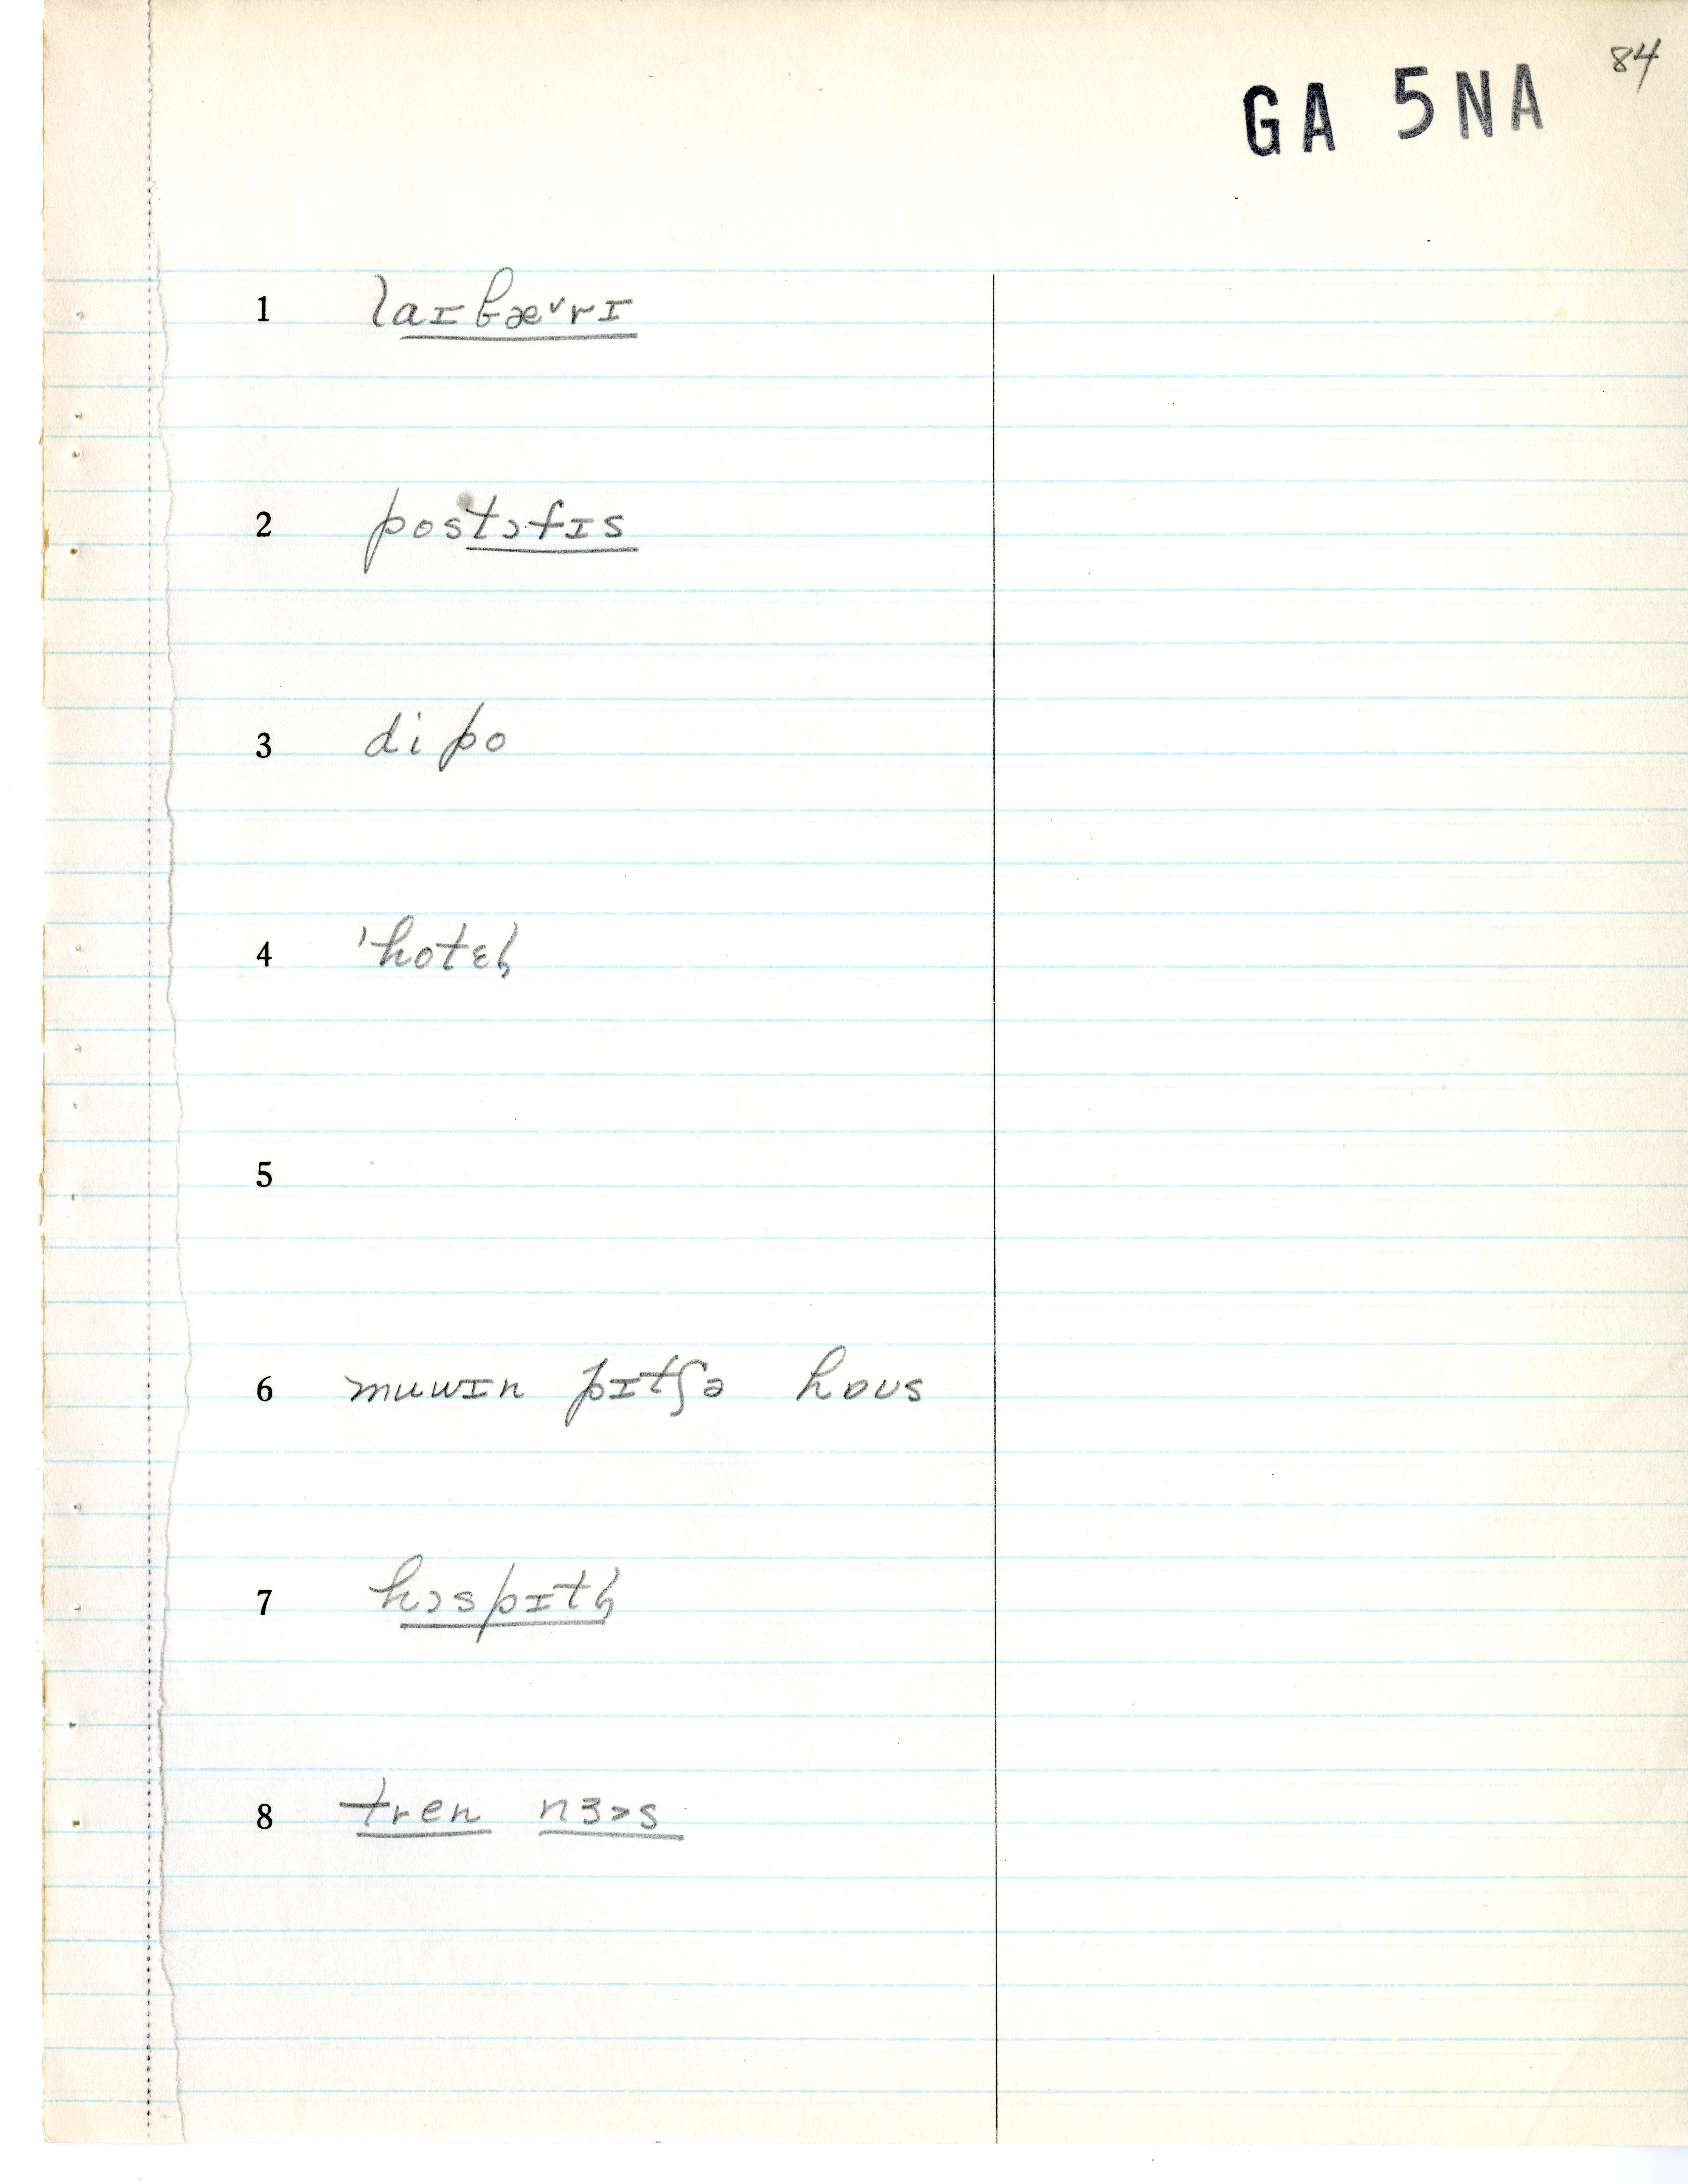 84
GA 5NA
1 laɪbæ˅rɪ
2 postɔfɪs
3 dipo
4 'hotɛl̩
5
6 muwɪn pɪtʃə hɒʊs
7 hɔspɪtl̩
8 tren nɜ>s